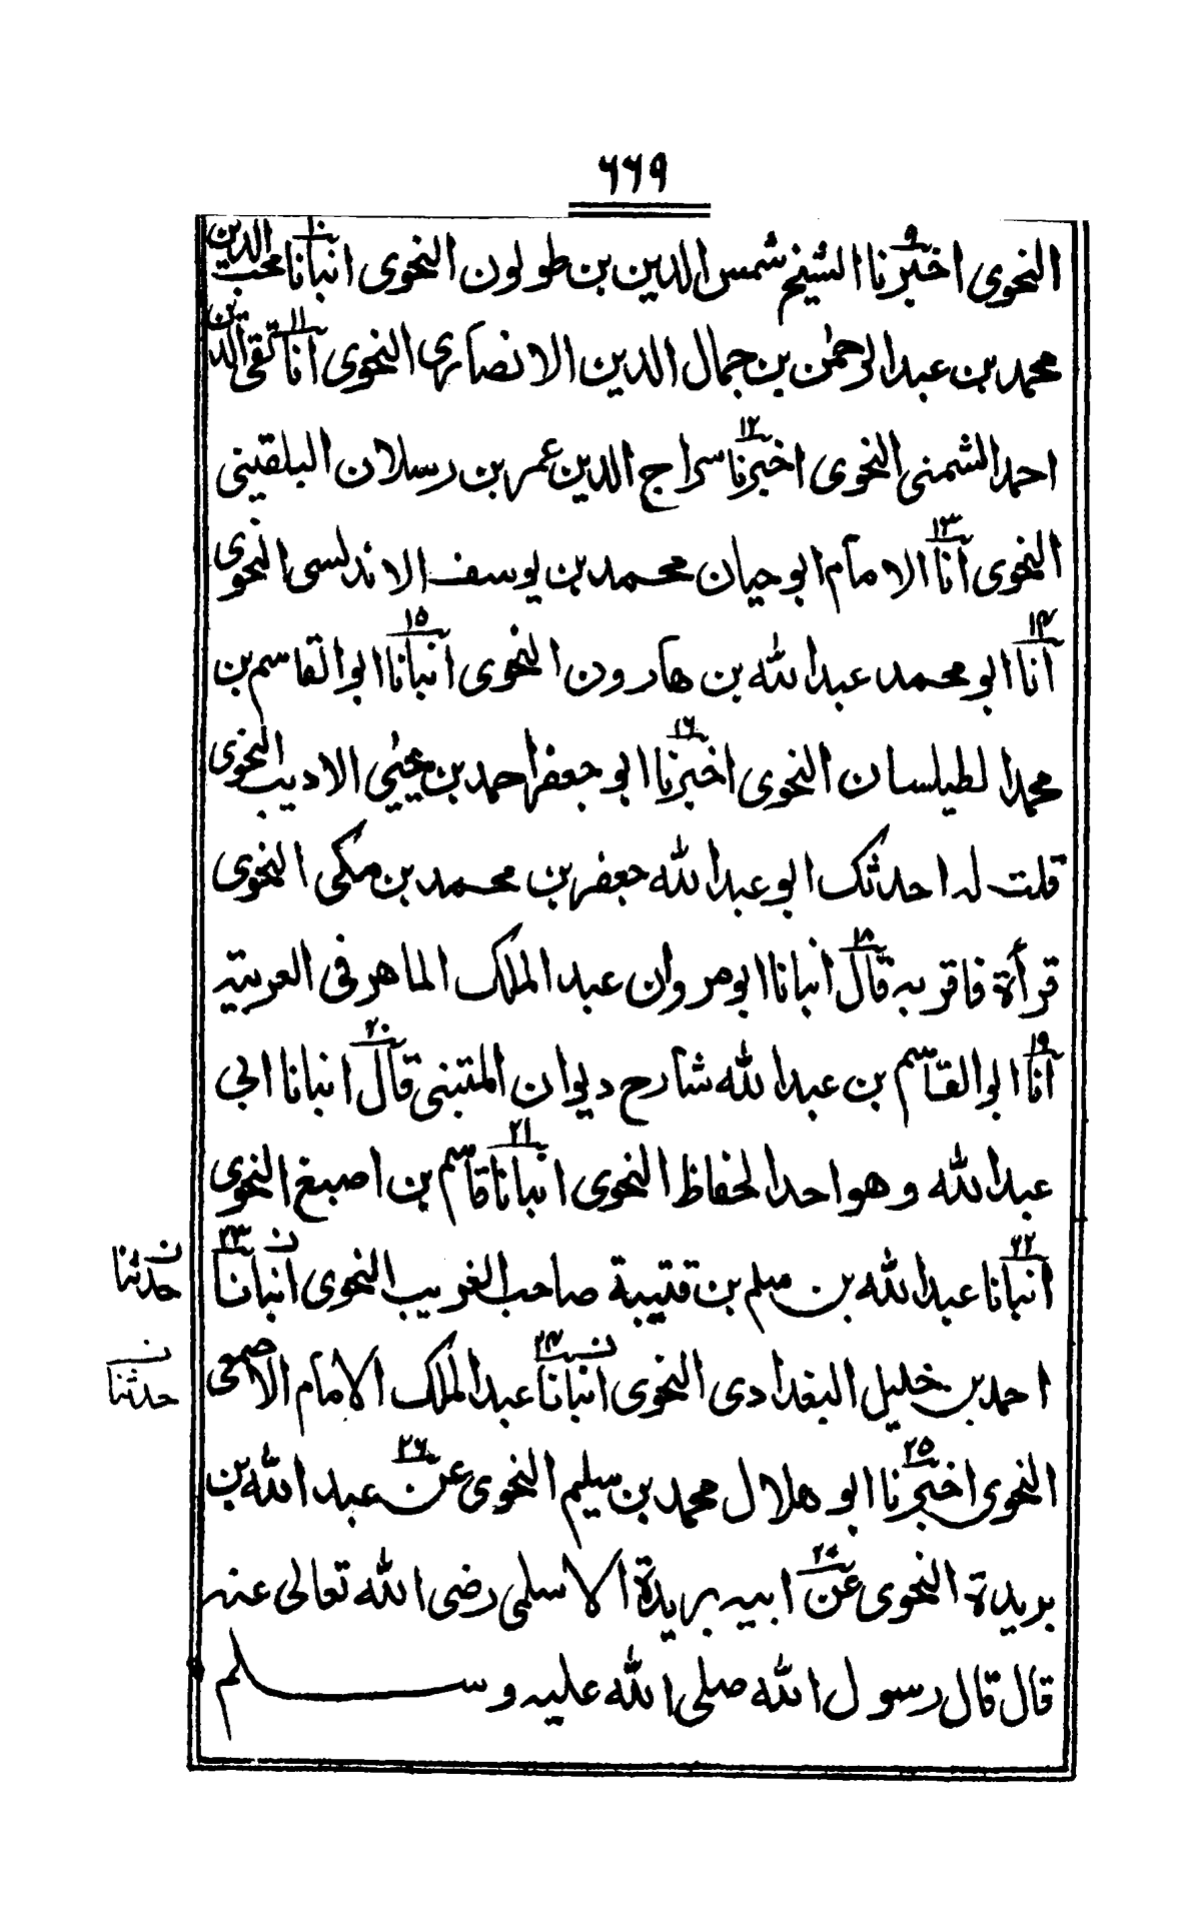 ٦٦٩
النحوى اخبرنا ٩ الشيخ شمس الدين بن طولون النحوى انبانا ١٠ محب الدين
محمد بن عبد الرحمٰن بن جمال الدين الانصارى النحوى انا ١١ تقى الدين
احمد الشمنى النحوى اخبرنا ١٢ سراج الدين عمر بن رسلان البلقينى
النحوى انا ١٣ الامام ابو حيان محمد بن يوسف الاندلسى النحوى
انا ١٤ ابو محمد عبد الله بن هارون النحوى انبانا ١٥ ابو القاسم بن
محمد الطيلسان النحوى اخبرنا ١٦ ابو جعفر احمد بن يحيٰي الاديب النحوى
قلت له احدثك ابو عبد الله جعفر بن محمد بن مكى النحوى
قرأة فاقر به قال ١٨ انبانا ابو مروان عبد الملك الماهر فى العربية
انا ١٩ ابو القاسم بن عبد الله شارح ديوان المتنبى قال ٢٠ انبانا ابى
عبد الله وهو احد الحفاظ النحوى انبانا ٢١ قاسم بن اصبغ النحوى
انبانا ٢٢ عبد الله بن مسلم بن قتيبة صاحب الغريب النحوى انبانا ن ٢٣
ن حدثنا
احمد بن خليل البغدادى النحوى انبانا ن ٢٤ عبد الملك الامام الاصمعى
ن حدثنا
النحوى اخبرنا ٢٥ ابو هلال محمد بن سليم النحوى عن ٢٦ عبد الله بن
بريدة النحوى عن ٢٧ ابيه بريدة الاسلمى رضى الله تعالى عنه
قال قال رسول الله صلى الله عليه وسلم